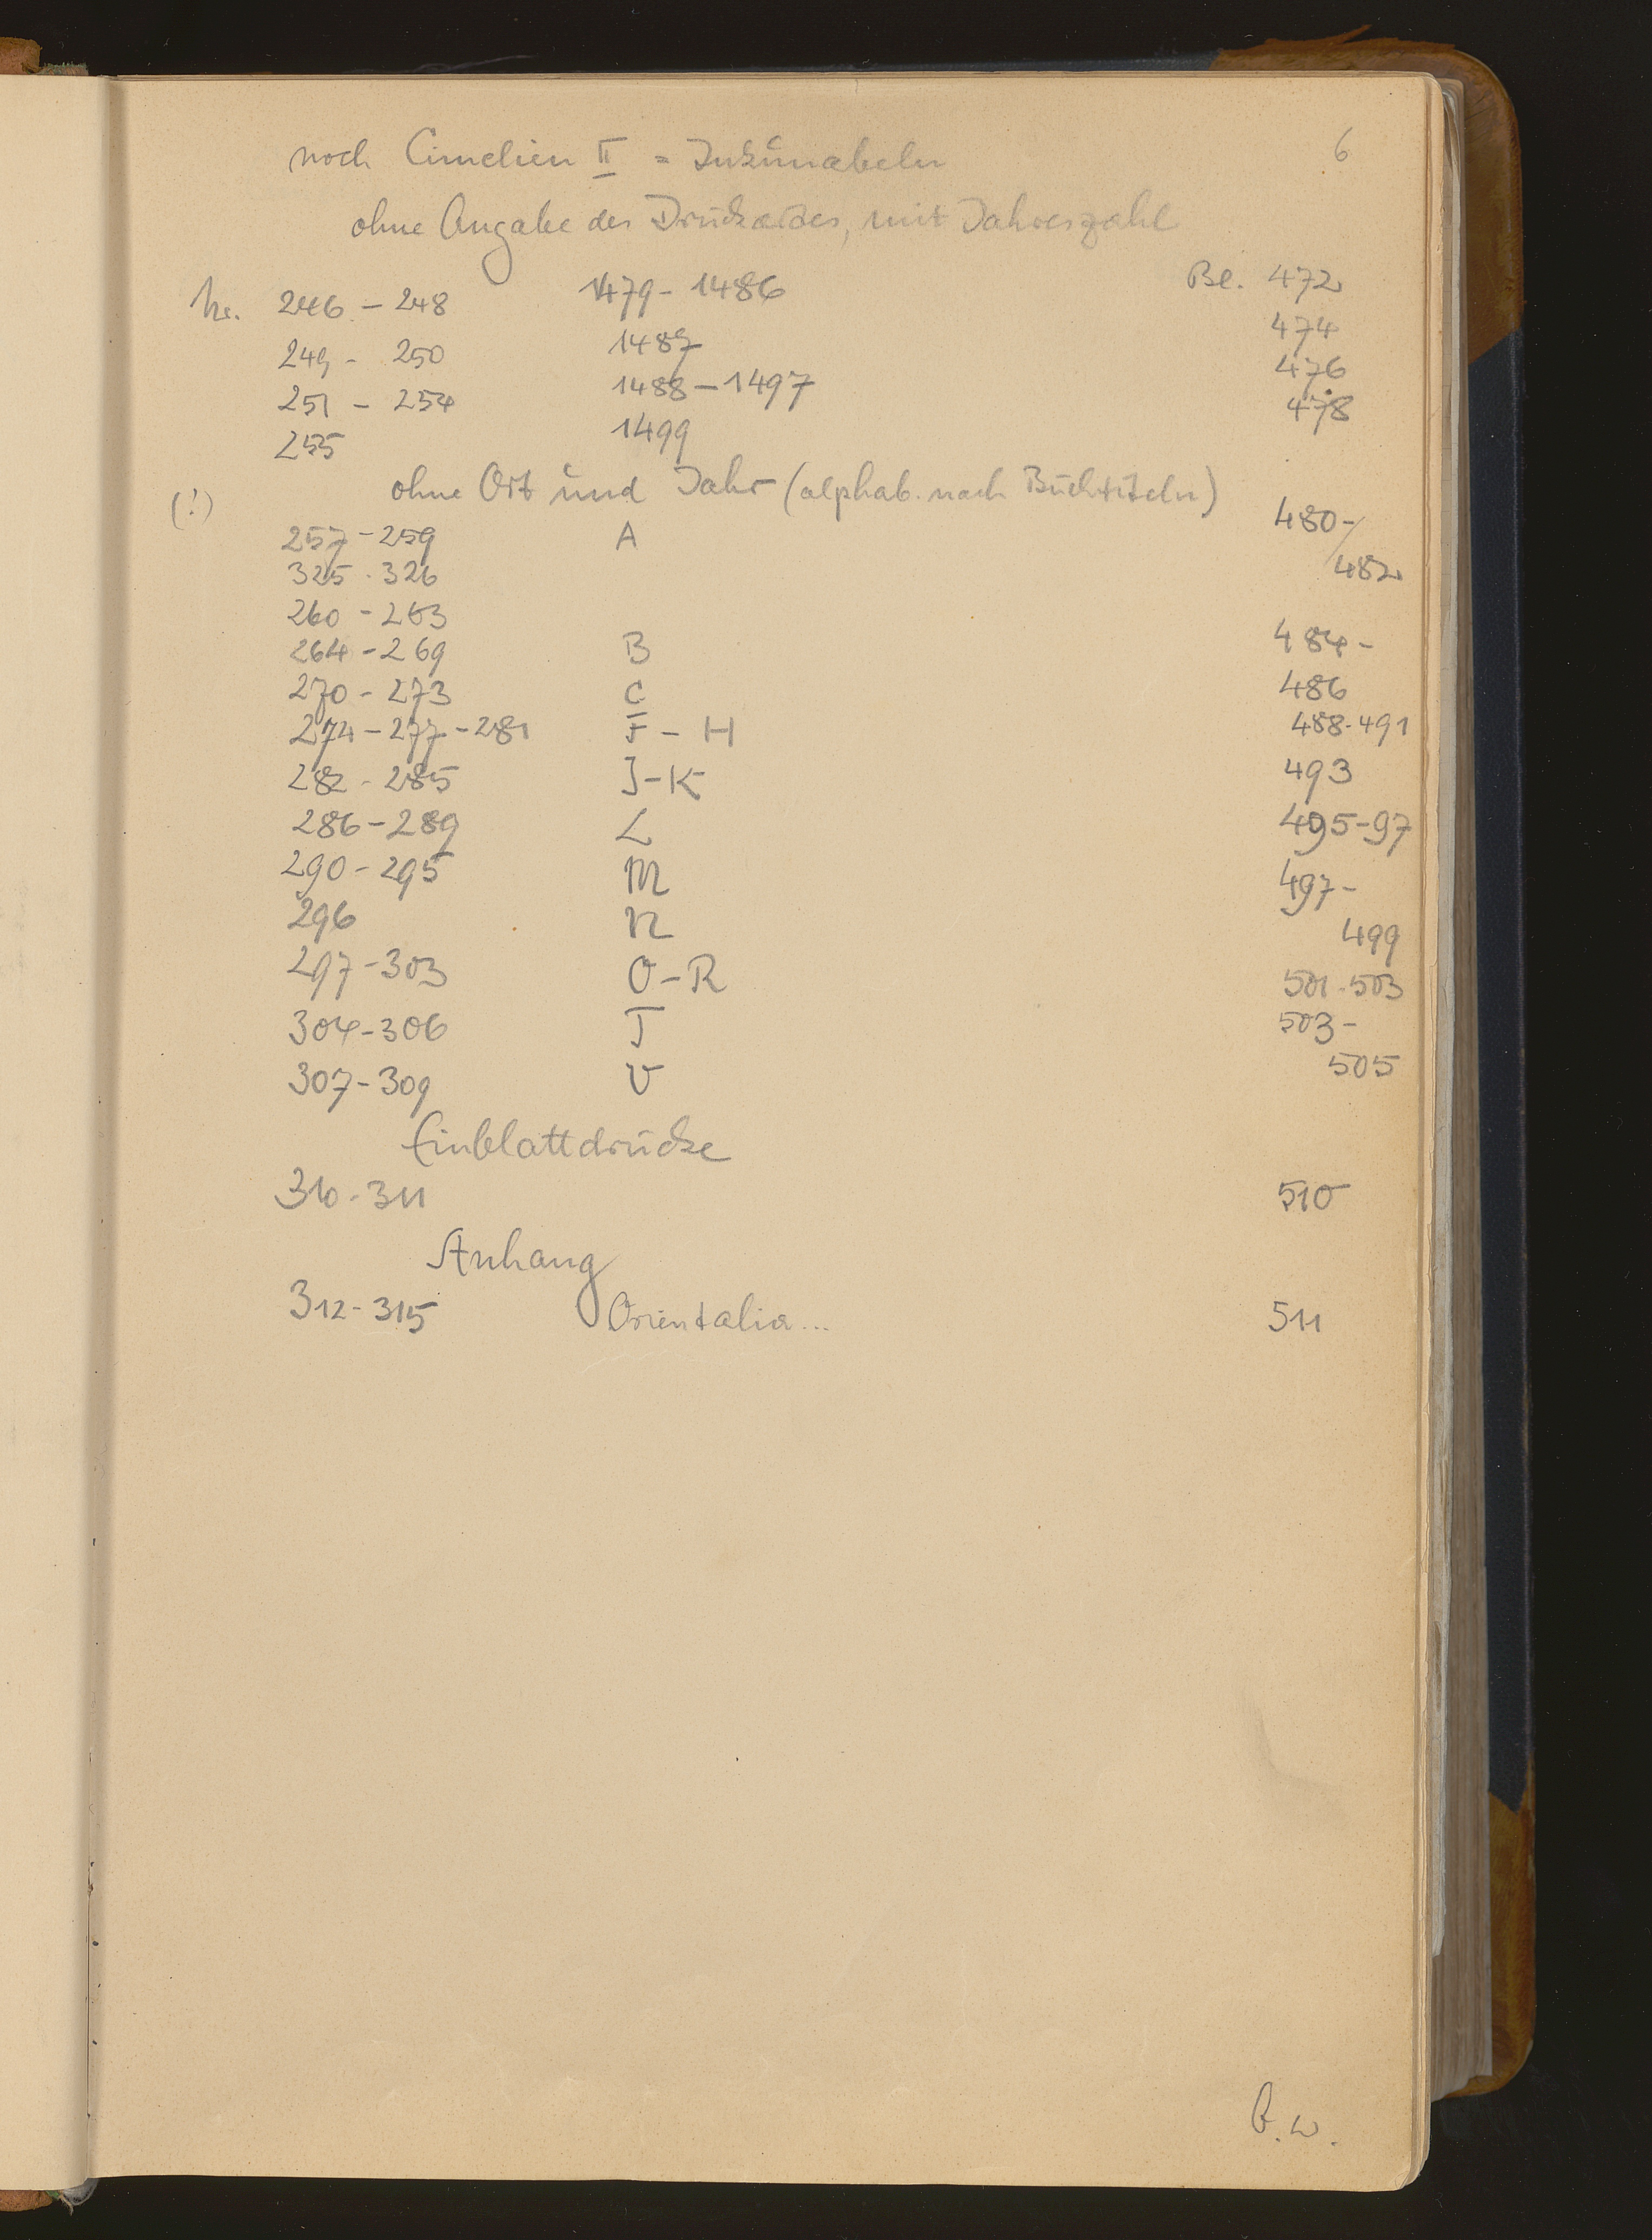 6
noch Cimelien II = Inkunabeln
ohne Angabe des Druckortes, mit Jahreszahl
Nr. 246 - 248 1479 - 1486 Bl. 472
249 - 250 1487 474
251 - 254 1488 - 1497 476
255 1499 478
(!) ohne Ort und Jahr (alphab. nach Buchtiteln)
257 - 259 A 480 -/
325 - 326 482
260 - 263
264 - 269 B 484 -
270 - 273 C 486
274 - 277 - 281 F - H 488 - 491
282 - 285 J - K 493
286 - 289 L 495 - 97
290 - 295 M 497 -
296 N 499
297 - 303 O - R 501 - 503
304 - 306 T 503 -
307 - 309 V 505
Einblattdrucke
310 - 311 510
Anhang
312 - 315 Orientalia ... 511
b.w.